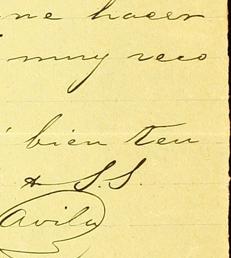 me hacer
muy reco
bien ten
& S.S.
Avila